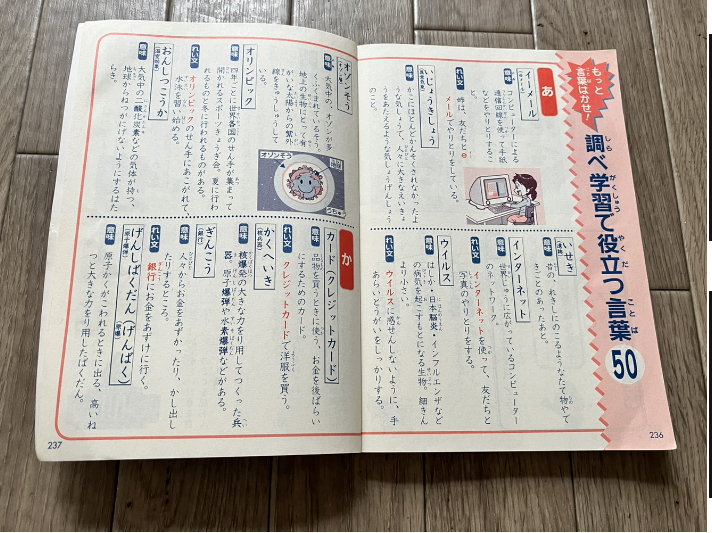 もっと
言葉はかせ！
調べ学習で役立つ言葉
50
あ
イーメール
意味
コンピューターによる
通信回線を使って手紙
などをやりとりするこ
と。
れい文
姉は、友だちとe
メールでやりとりをしている。
いじょうきしょう
意味
かこにほとんどかんそくされなかったよ
うな気しょうで、人々に大きなえいきょ
うをあたえるような気しょうげんしょう
のこと。
いせき
意味
昔の、れきしにのこるようなたて物やで
きごとのあったあと。
インターネット
意味
世界じゅうに広がっているコンピューター
のネットワーク。
れい文
インターネットを使って、友だちと
写真のやりとりをする。
ウイルス
意味
はしか・日本脳炎・インフルエンザなど
の病気を起こすもとになる生物。細きん
より小さい。
れい文
ウイルスに感せんしないように、手
あらいとうがいをしっかりする。
236
オゾンそう
意味
大気中の、オゾンが多
くふくまれているそう。
地上の生物にとって有
がいな太陽からの紫外
線をきゅうしゅうして
いる。
オゾンそう
地球
オリンピック
意味
四年ごとに世界各国のせん手が集まって
開かれるスポーツきょうぎ会。夏に行わ
れるものと冬に行われるものがある。
れい文
オリンピックのせん手にあこがれて、
水泳を習い始める。
おんしつこうか
（温室効果）
意味
大気中の二酸化炭素などの気体が持つ、
地球からねつがにげないようにするはた
らき。
か
カード（クレジットカード）
意味
品物を買うときに使う、お金を後ばらい
にするためのカード。
れい文
クレジットカードで洋服を買う。
かくへいき
（核兵器）
意味
核爆発の大きな力を利用してつくった兵
器。原子爆弾や水素爆弾などがある。
ぎんこう
（銀行）
意味
人々からお金をあずかったり、かし出し
たりするところ。
れい文
銀行にお金をあずけに行く。
げんしばくだん（げんばく）
（原子爆弾）
（原爆）
意味
原子かくがこわれるときに出る、高いね
つと大きな力を利用したばくだん。
237